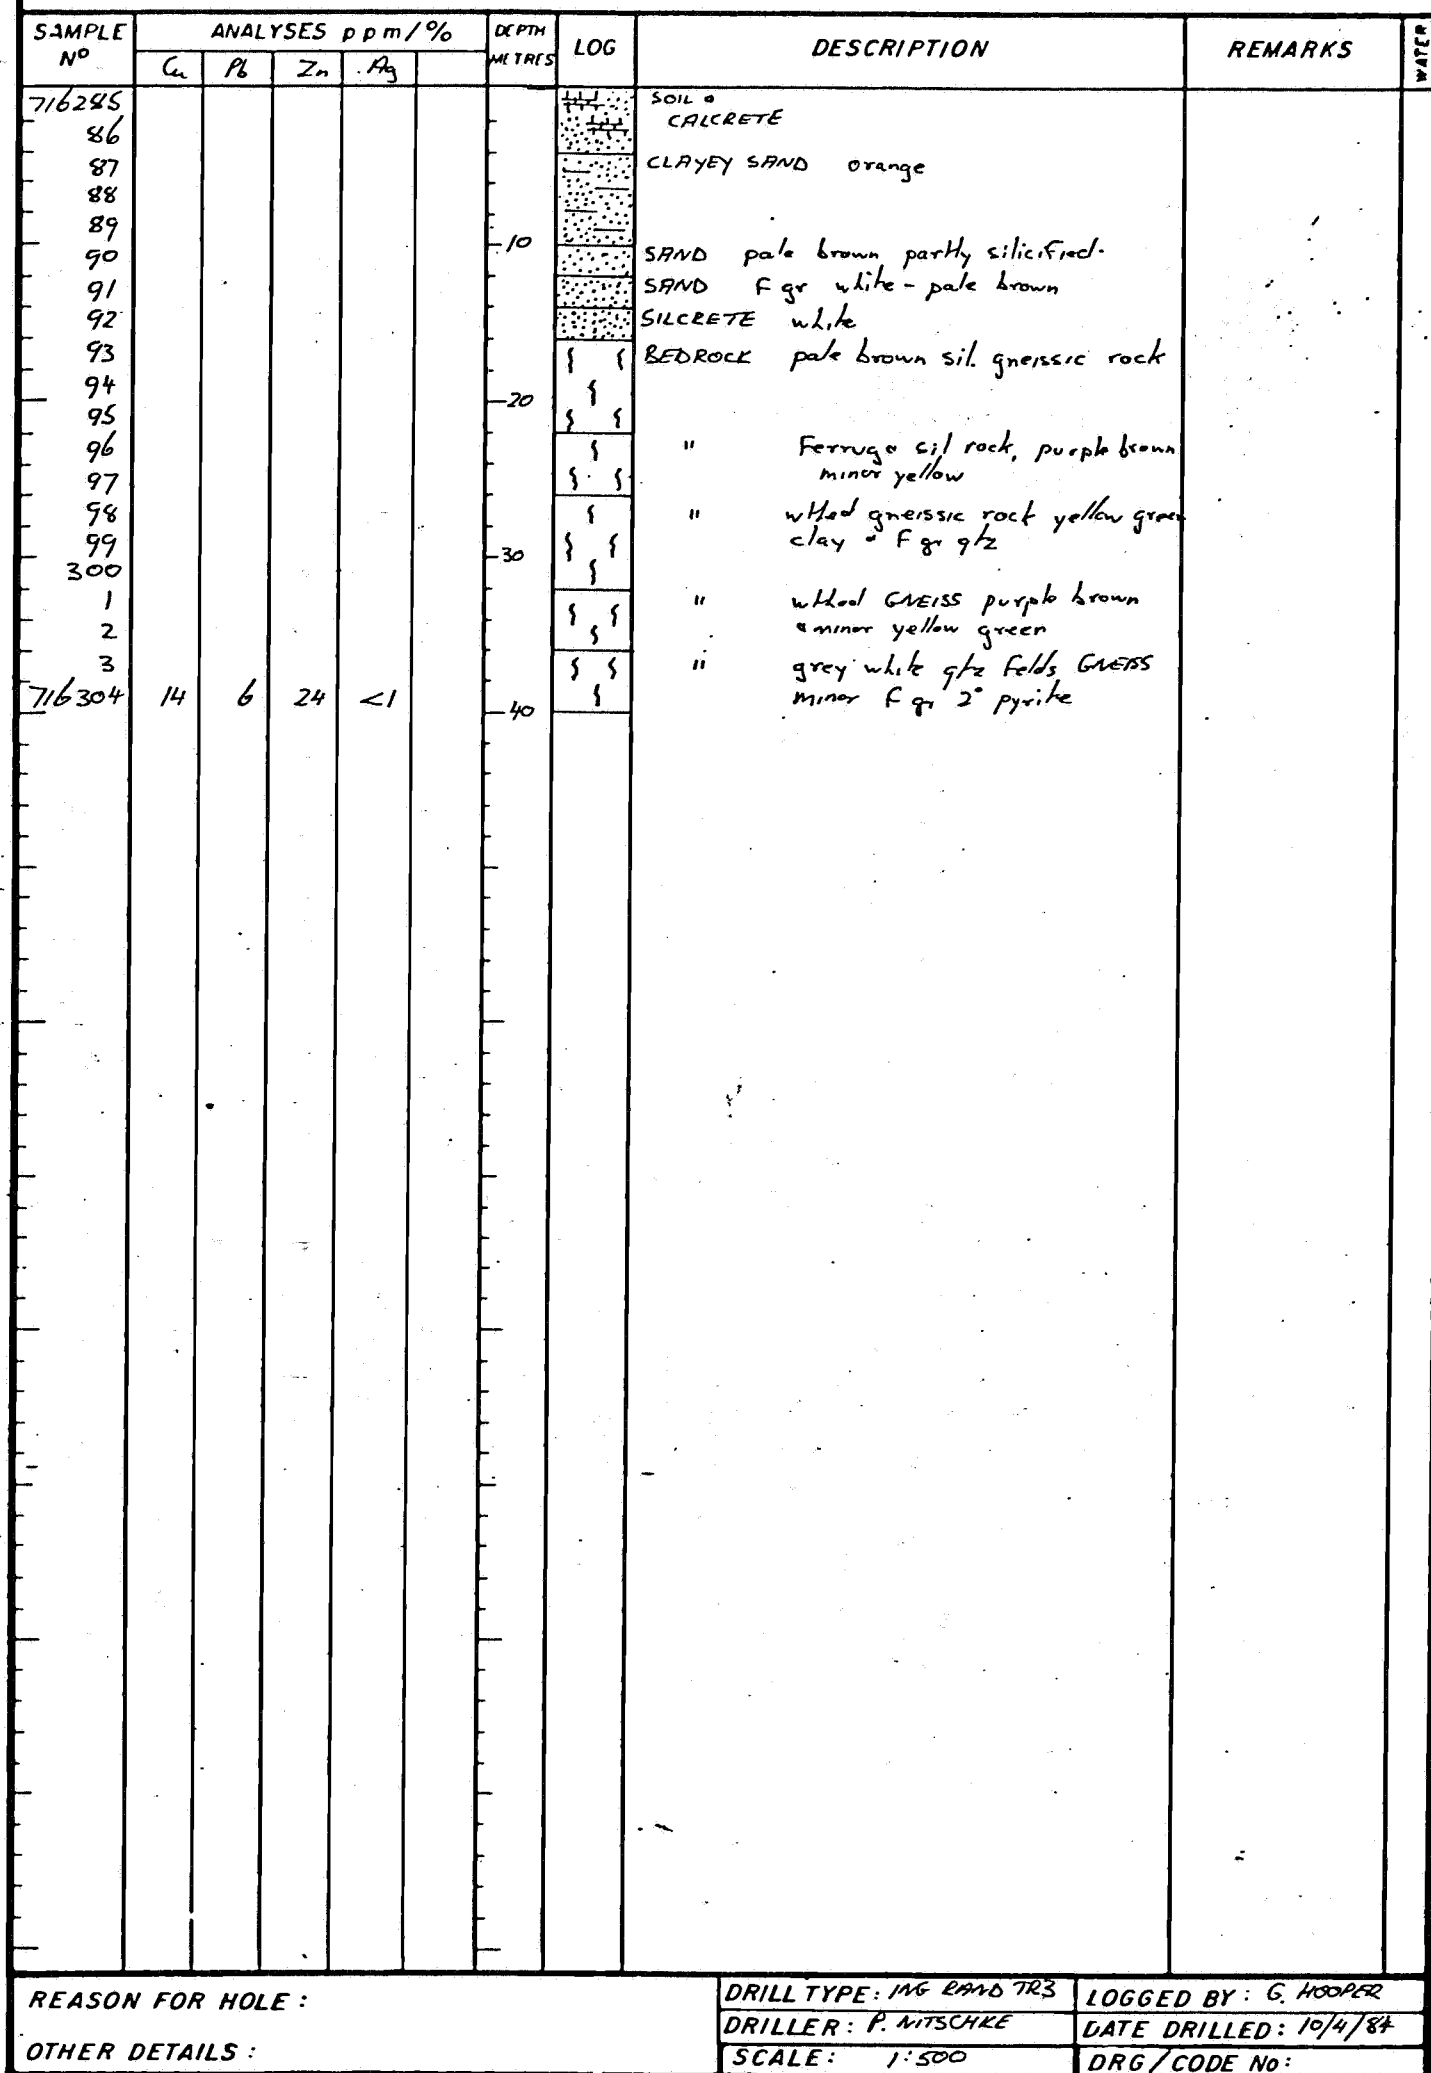 SAMPLE No ANALYSES ppm/% DEPTH METRES LOG DESCRIPTION REMARKS WATER
Cu Pb Zn Ag
716285 SOIL &
CALCRETE
86
87 CLAYEY SAND orange
88
89
10
90 SAND pale brown partly silicified.
91 SAND F gr white - pale brown
92 SILCRETE white
93 BEDROCK pale brown sil. gneissic rock
94
20
95
96 " Ferrug & sil rock, purple brown
97 minor yellow
98 " wthed gneissic rock yellow green
99 clay & F gr qtz
30
300
1 " wthed GNEISS purple brown
2 & minor yellow green
3 " grey white qtz felds GNEISS
716304 14 6 24 <1 minor F gr 2° pyrite
40
REASON FOR HOLE :
OTHER DETAILS :
DRILL TYPE : ING RAND TR3
DRILLER : P. NITSCHKE
SCALE : 1:500
LOGGED BY : G. HOOPER
DATE DRILLED : 10/4/84
DRG / CODE No :